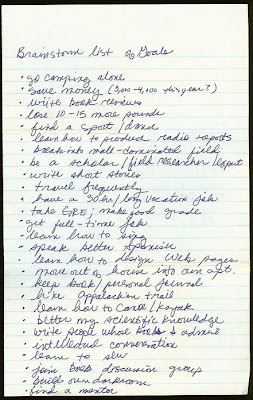 Brainstorm list of Goals
• go camping alone
• save money (3,000-4,000 this year?)
• write book reviews
• lose 10-15 more pounds
• find a sport /
• learn how to produce radio reports
• break into male-dominated field
• be a scholar/field researcher/expert
• write short stories
• travel frequently
• have a 30hr/long vacation job
• take GRE; make good grade
• get full-time job
• learn how to sing
• speak better Spanish
• learn how to design Web pages
• move out of house into an apt.
• keep book/personal journal
• hike Appalachian trail
• learn how to canoe/kayak
• better my scientific knowledge
• write people whose books I admire
• intellectual conversation
• learn to sew
• join book discussion group
• build own darkroom
• find a mentor